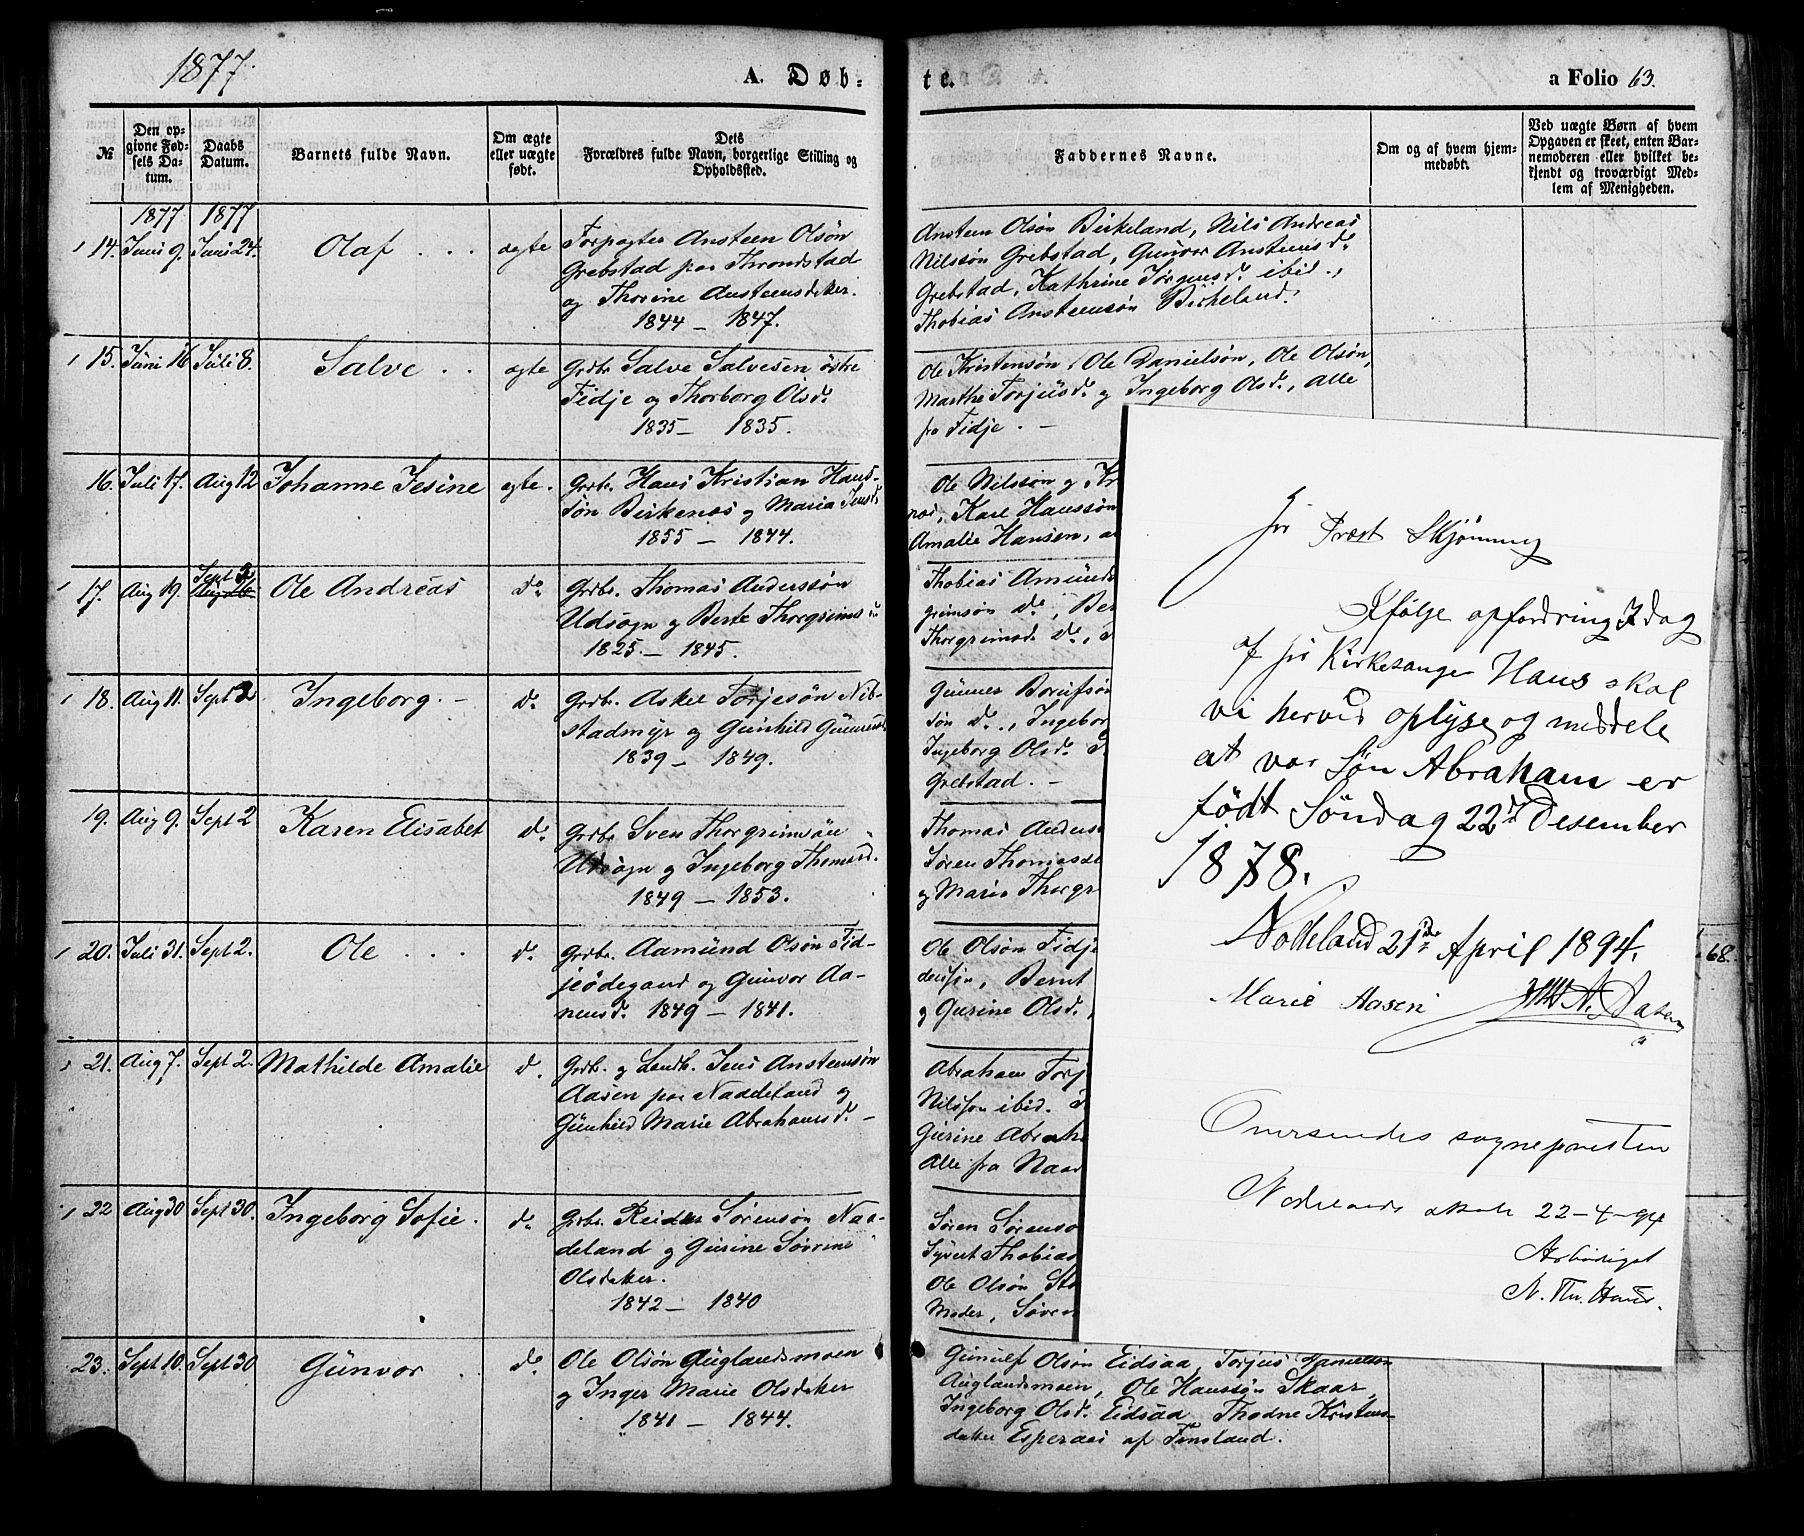 1877.
A. Døb-
№
Den op-
givne Fød-
sels Da-
tum.
Daabs
Datum.
Barnets fulde Navn.
Om ægte
eller uægte
født.
Dets
Forældres fulde Navn, borgerlige Stilling og
Opholdssted.
1877 1877
14. Juni 9. Juni 24. Olaf ægte Forpagter Ansteen Olsön
Grebstad paa Throndstad
og Thorine Ansteensdatter.
1844 – 1847.
15. Juni 16 Juli 8. Salve ægte Grdbr. Salve Salvesen östre
Tidje og Thorborg Olsd.
1835 – 1835.
16. Juli 17. Aug 12 Johanne Jesine ægte. Grdbr. Hans Kristian Hans-
sön Birkenes og Maria Jensd.
1855 – 1844.
Sept 2
17. Aug 19. Aug 26 Ole Andreas do Grdbr. Thomas Anderssön
Udsogn og Berte Thorgrimsd.
1825. – 1845.
18. Aug 11. Sept 2 Ingeborg. – do Grdbr. Askel Torjesön Nib-
stadmyr og Gunhild Gunnersd.
1839 – 1849.
19. Aug 9. Sept 2 Karen Elisabet do Grdbr. Sven Thorgrimsön
Udsogn og Ingeborg Thomasd.
1849 – 1853.
20. Juli 31. Sept 2. Ole do Grdbr. Aamund Olsön Tid-
jeödegaard og Gunvor Aa-
nensd. 1849 – 1841.
21. Aug 7. Sept 2. Mathilde Amalie d. Grdbr. og Landh. Jens Ansteensön
Aasen paa Naadeland og
Gunhild Marie Abrahamsd. –
22 Aug 30 Sept 30. Ingeborg Sofie. do Grdbr. Reider Sörensön Naa-
deland og Gurine Sövrine
Olsdatter.
1842 – 1840
23. Sept 10. Sept 30 Gunvor do Ole Olsön Auglandsmoen
og Inger Marie Olsdatter
1841 – 1844.
te.
a Folio 63.
Faddernes Navne.
Om og af hvem hjem-
medøbt.
Ved uægte Børn af hvem
Opgaven er skeet, enten Bar-
nemoderen eller hvilket be-
kjendt og troværdigt Med-
lem af Menigheden.
Ansteen Olsön Birkeland, Nils Andreas
Nilssön Grebstad, Gunvor Ansteensd.
Grebstad, Kathrine Jörgensd. ibid.,
Thobias Ansteensön Birkeland.
Ole Kristensön, Ole Danielsön, Ole Olsön,
Marthe Torjusd. og Ingeborg Olsd., alle
fra Tidje. –
Ole Nilssön og Kr
nes, Karl Hanssön
Amalie Hansen, a
Thobias Amunds
grimsön do, Ber
Thorgrimsd. do,
Gunner Borufsön
sön do., Ingebor
Ingeborg Olsd.
Grebstad. –
Thomas Anders
Sören Thomasse
og Marie Thorgr
Ole Olsön Tidje
densön, Bernt
og Gurine Olsd.,
Abraham Torj
Nilsson ibid.
Gurine Abrah
Alle fra Naad
Sören Sörenso
Syvert Thobias
Ole Olsön Sta
Moder, Sövren
Gunulf Olsön Eidsaa, Torjus Danielson
Auglandsmoen, Ole Hanssön Skaar,
Ingeborg Olsd. Eidsaa, Thodne Kristens-
datter Espenes af Finsland.
68.
Hr Præst Skjönning
Ifölge opfordring I dag
af hr Kirkesanger Haus skal
vi herved oplyse og meddele
at vor Sön Abraham er
født Söndag 22de Desember
1878.
Nodeland 21de April 1894.
Marie Aasen
Oversendes sognepresten
Nodelands skole 22-4-94
Ærbödigst
N. Th. Haus.